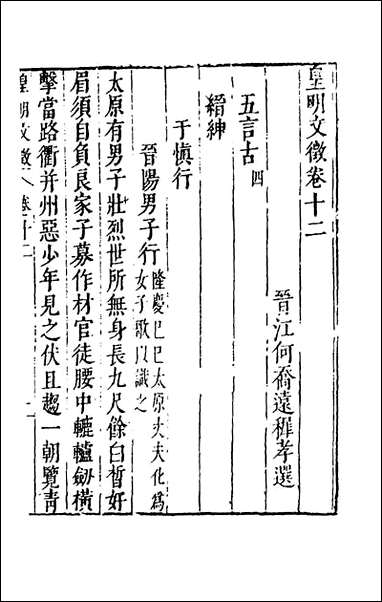 皇明文徵卷十二
晉江何喬遠穉孝選
五言古 四
縉紳
于慎行
晉陽男子行 隆慶己巳太原丈夫化為
女子歌以識之
太原有男子壯烈世所無身長九尺餘白皙好
眉須自負良家子募作材官徒腰中轆轤劒橫
擊當路衢并州惡少年見之伏且趨一朝覽青
皇明文徵 卷十二 一